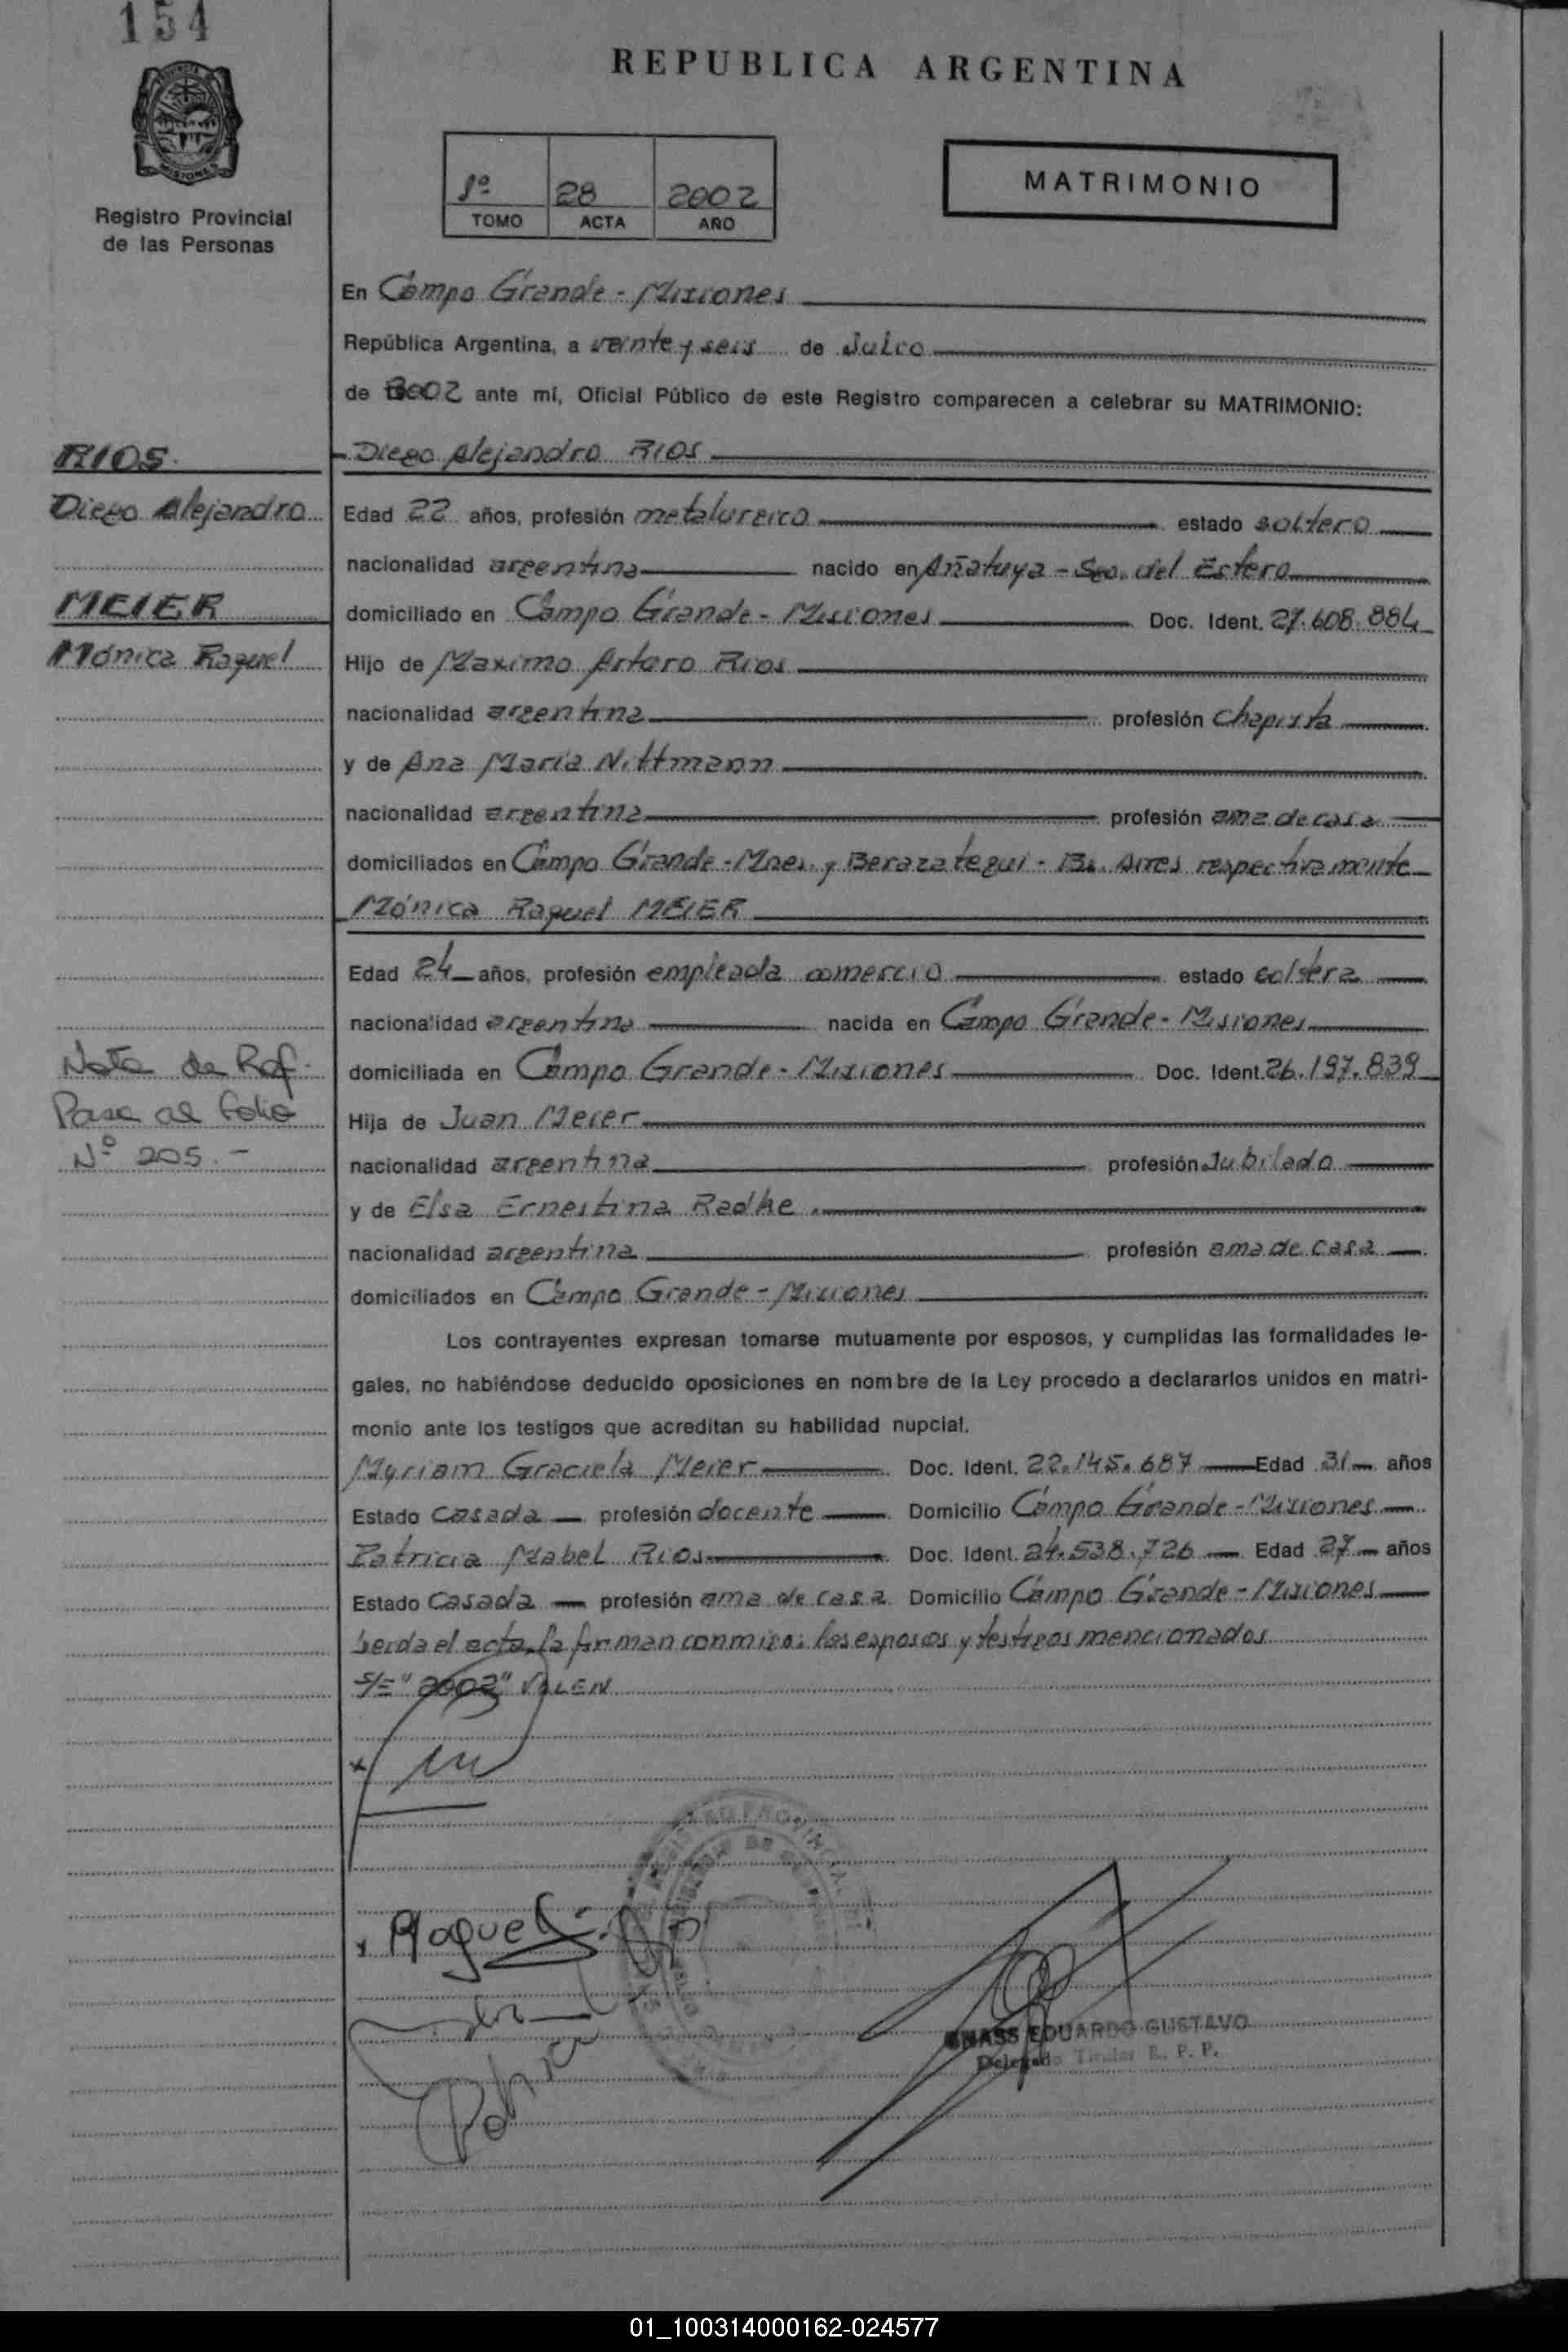 154
REPUBLICA ARGENTINA
MISIONES
Registro Provincial
de las Personas
1º 28 2002
TOMO ACTA AÑO
MATRIMONIO
En Campo Grande - Misiones
República Argentina, a veinte y seis de Julio
de 2002 ante mí, Oficial Público de este Registro comparecen a celebrar su MATRIMONIO:
RIOS
Diego Alejandro RIOS
Diego Alejandro
Edad 22 años, profesión metalurgico estado soltero
nacionalidad argentina nacido en Añatuya - Sgo. del Estero
MEIER
domiciliado en Campo Grande - Misiones Doc. Ident. 27.608.884
Mónica Raquel
Hijo de Maximo Arturo Rios
nacionalidad argentina profesión chapista
y de Ana María Nittmann
nacionalidad argentina profesión ama de casa
domiciliados en Campo Grande - Mnes. y Berazategui - Bs. Aires respectivamente
Mónica Raquel MEIER
Edad 24 años, profesión empleada comercio estado soltera
nacionalidad argentina nacida en Campo Grande - Misiones
Nota de Ref.
domiciliada en Campo Grande - Misiones Doc. Ident. 26.197.839
Pasa al folio
Hija de Juan Meier
Nº 205.-
nacionalidad argentina profesión Jubilado
y de Elsa Ernestina Radke.
nacionalidad argentina profesión ama de casa
domiciliados en Campo Grande - Misiones
Los contrayentes expresan tomarse mutuamente por esposos, y cumplidas las formalidades le-
gales, no habiéndose deducido oposiciones en nombre de la Ley procedo a declararlos unidos en matri-
monio ante los testigos que acreditan su habilidad nupcial.
Myriam Graciela Meier Doc. Ident. 22.145.687 Edad 31 años
Estado casada profesión docente Domicilio Campo Grande - Misiones
Patricia Mabel Rios Doc. Ident. 24.538.726 Edad 27 años
Estado casada profesión ama de casa Domicilio Campo Grande - Misiones
Leida el acta, la firman conmigo: los esposos y testigos mencionados
S/E "2002" VALEN
Raquel
GNASS EDUARDO GUSTAVO
Delegado Titular R. P. P.
01_100314000162-024577